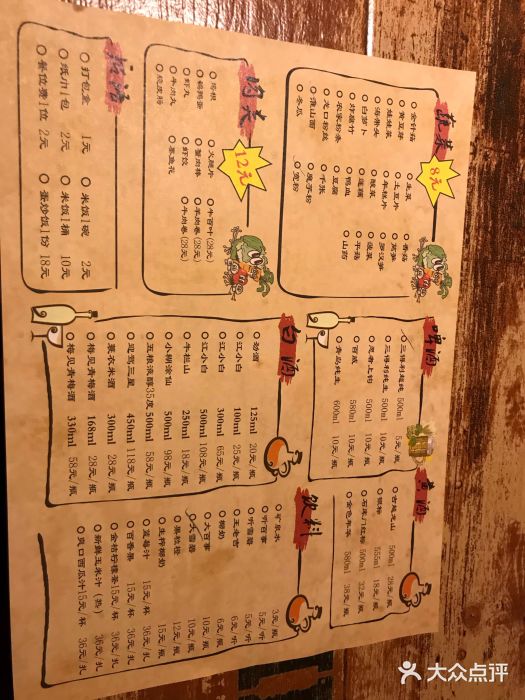 蔬菜 8元
○金针菇 ○生菜 ○香菇
○黄豆芽 ○土豆片 ○莴笋
○娃娃菜 ○年糕片
○海带头 ○酸菜 ○菠菜
○白萝卜 ○莲藕 ○平菇
○炸腐竹 ○鸭血 ○山药
○农家粉条 ○豆腐
○龙口粉丝 ○千张
○淮山面 ○魔芋粉
○冬瓜 ○宽粉
肉类 12元
○火腿片 ○牛百叶(28元)
○鹌鹑蛋 ○蟹肉棒 ○羊肉卷(28元)
○虾丸 ○虾饺 ○牛肉卷(28元)
○牛肉丸 ○墨鱼花
○脆皮肠
○打包盒 1元 ○米饭1碗 2元
○纸巾1包 2元 ○米饭1桶 10元
○餐位费1位 2元 ○蛋炒饭1份 18元
啤酒
三得利超纯 500ml 5元/瓶
○三得利纯生 500ml 10元/瓶
○忍者上钩 500ml 10元/瓶
○百威 580ml 10元/瓶
○青岛纯生 600ml 10元/瓶
白酒
○劲酒 125ml 20元/瓶
○江小白 100ml 25元/瓶
○江小白 300ml 65元/瓶
○江小白 500ml 108元/瓶
○牛栏山 250ml 18元/瓶
○小糊涂仙 500ml 98元/瓶
○五粮液醇35度 500ml 58元/瓶
○迎驾三星 450ml 118元/瓶
○蓑衣米酒 300ml 28元/瓶
○梅见青梅酒 168ml 28元/瓶
○梅见青梅酒 330ml 58元/瓶
黄酒
○古越龙山 500ml 28元/瓶
○银神 555ml 18元/瓶
○石库门红标 500ml 32元/瓶
○金色年华 580ml 38元/瓶
饮料
○矿泉水 3元/瓶
○听百事 5元/听
○听雪碧 5元/听
○王老吉 6元/听
○椰奶 6元/瓶
○大百事 10元/瓶
○大雪碧 10元/瓶
○果粒橙 12元/瓶
○生榨椰奶 15元/瓶
○蓝莓汁 15元/杯 36元/扎
○百香果 15元/杯 36元/扎
○金桔柠檬茶 15元/杯 36元/扎
○新鲜玉米汁(热) 36元/扎
○爽口西瓜汁 15元/杯 36元/扎
大众点评